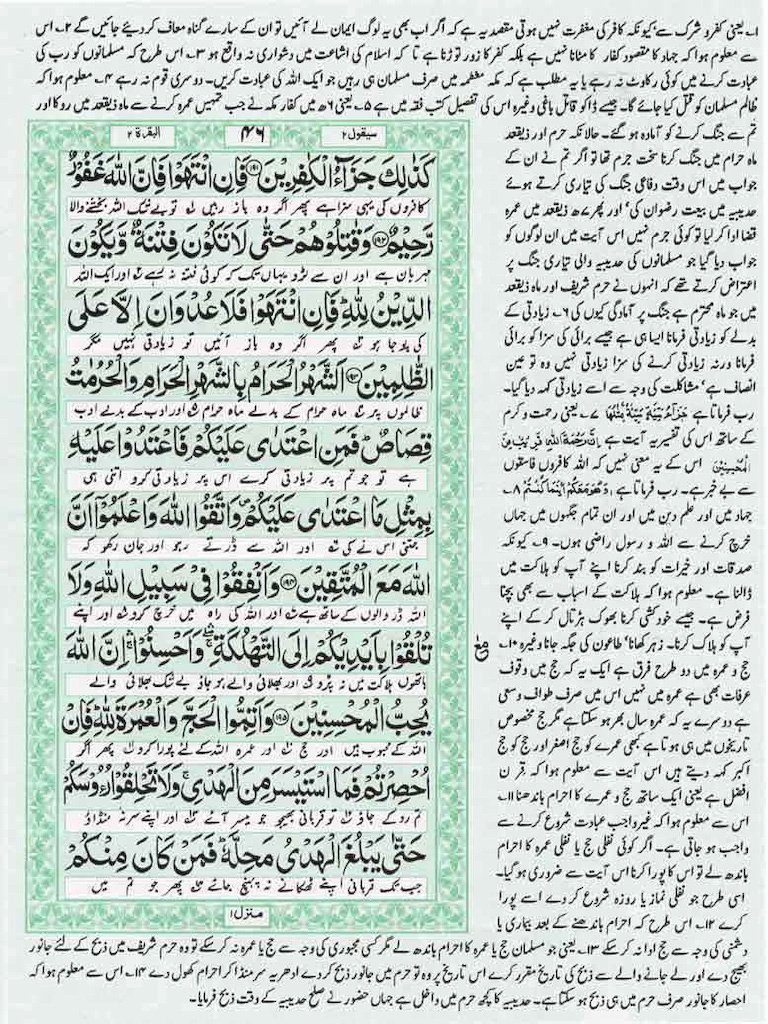 ۱۔ یعنی کفر و شرک سے' کیونکہ کافر کی مغفرت نہیں ہوتی مقصد یہ ہے کہ اگر اب بھی یہ لوگ ایمان لے آئیں تو ان کے سارے گناہ معاف کر دیئے جائیں گے ۲۔ اس
سے معلوم ہوا کہ جہاد کا مقصود کفار کا مٹانا نہیں ہے بلکہ کفر کا زور توڑنا ہے تا کہ اسلام کی اشاعت میں دشواری نہ واقع ہو ۳۔ اس طرح کہ مسلمانوں کو رب کی
عبادت کرنے میں کوئی رکاوٹ نہ رہے یا یہ مطلب ہے کہ مکہ معظمہ میں صرف مسلمان ہی رہیں جو ایک اللہ کی عبادت کریں۔ دوسری قوم نہ رہے ۴۔ معلوم ہوا کہ
ظالم مسلمان کو قتل کیا جائے گا۔ جیسے ڈاکو قاتل باغی وغیرہ اس کی تفصیل کتب فقہ میں ہے ۵۔ یعنی ۶ھ میں کفار مکہ نے جب تمہیں عمرہ کرنے سے ماہ ذیقعد میں روکا اور
تم سے جنگ کرنے کو آمادہ ہو گئے۔ حالانکہ حرم اور ذیقعد
ماہ حرام میں جنگ کرنا سخت جرم تھا تو اگر تم نے ان کے
جواب میں اس وقت دفاعی جنگ کی تیاری کرتے ہوئے
حدیبیہ میں بیعت رضوان کی' اور پھر ۷ھ ذیقعد میں عمرہ
قضا ادا کر لیا تو کوئی جرم نہیں اس آیت میں ان لوگوں کو
جواب دیا گیا جو مسلمانوں کی حدیبیہ والی تیاری جنگ پر
اعتراض کرتے تھے کہ انہوں نے حرم شریف اور ماہ ذیقعد
میں جو ماہ محترم ہے جنگ پر آمادگی کیوں کی ۶۔ زیادتی کے
بدلے کو زیادتی فرمانا ایسا ہی ہے جیسے برائی کی سزا کو برائی
فرمانا ورنہ زیادتی کرنے کی سزا زیادتی نہیں وہ تو عین
انصاف ہے' مشاکلت کی وجہ سے اسے زیادتی کہہ دیا گیا۔
رب فرماتا ہے جَزَآءُ سَيِّئَةٍ سَيِّئَةٌ مِّثْلُهَا ۷۔ یعنی رحمت و کرم
کے ساتھ اس کی تفسیر یہ آیت ہے اِنَّ رَحْمَةَ اللّٰهِ قَرِيْبٌ مِّنَ
الْمُحْسِنِيْنَ اس کے یہ معنی نہیں کہ اللہ کافروں فاسقوں
سے بے خبر ہے۔ رب فرماتا ہے وَهُوَ مَعَكُمْ اَيْنَمَا كُنْتُمْ ۸۔
جہاد میں اور علم دین میں اور ان تمام جگہوں میں جہاں
خرچ کرنے سے اللہ و رسول راضی ہوں۔ ۹۔ کیونکہ
صدقات اور خیرات کو بند کرنا اپنے آپ کو ہلاکت میں
ڈالنا ہے۔ معلوم ہوا کہ ہلاکت کے اسباب سے بھی بچنا
فرض ہے۔ جیسے خودکشی کرنا بھوک ہڑتال کر کے اپنے
آپ کو ہلاک کرنا۔ زہر کھانا' طاعون کی جگہ جانا وغیرہ ۱۰۔
حج و عمرہ میں دو طرح فرق ہے ایک یہ کہ حج میں وقوف
عرفات بھی ہے عمرہ میں نہیں اس میں صرف طواف و سعی
ہے دوسرے یہ کہ عمرہ سال بھر ہو سکتا ہے مگر حج مخصوص
تاریخوں میں ہی ہوتا ہے کبھی عمرے کو حج اصغر اور حج کو حج
اکبر کہہ دیتے ہیں اس آیت سے معلوم ہوا کہ قرن
افضل ہے یعنی ایک ساتھ حج و عمرے کا احرام باندھنا ۱۱۔
اس سے معلوم ہوا کہ غیر واجب عبادت شروع کرنے سے
واجب ہو جاتی ہے۔ اگر کوئی نفلی حج یا نفلی عمرہ کا احرام
باندھ لے تو اس کا پورا کرنا اس آیت سے ضروری ہو گیا۔
اسی طرح جو نفلی نماز یا روزہ شروع کر دے اسے پورا
کرے ۱۲۔ اس طرح کہ احرام باندھنے کے بعد بیماری یا
دشمنی کی وجہ سے حج ادا نہ کر سکے ۱۳۔ یعنی جو مسلمان حج یا عمرہ کا احرام باندھ لے مگر کسی مجبوری کی وجہ سے حج یا عمرہ نہ کر سکے تو وہ حرم شریف میں ذبح کے لئے جانور
بھیج دے اور لے جانے والے سے ذبح کی تاریخ مقرر کرے اس تاریخ پر وہ تو حرم میں جانور ذبح کر دے ادھر یہ سر منڈا کر احرام کھول دے ۱۴۔ اس سے معلوم ہوا کہ
احصار کا جانور صرف حرم میں ہی ذبح ہو سکتا ہے۔ حدیبیہ کا کچھ حرم میں داخل ہے جہاں حضور نے صلح حدیبیہ کے وقت ذبح فرمایا۔
سیقول ۲ ۴۶ البقرة ۲
كَذٰلِكَ جَزَآءُ الْكٰفِرِيْنَ ۱۹۱ فَاِنِ انْتَهَوْا فَاِنَّ اللّٰهَ غَفُوْرٌ
کافروں کی یہی سزا ہے پھر اگر وہ باز رہیں تو بے شک اللہ بخشنے والا
رَّحِيْمٌ ۱۹۲ وَقٰتِلُوْهُمْ حَتّٰى لَا تَكُوْنَ فِتْنَةٌ وَّيَكُوْنَ
مہربان ہے اور ان سے لڑو یہاں تک کہ کوئی فتنہ نہ رہے اور ایک اللہ
الدِّيْنُ لِلّٰهِ فَاِنِ انْتَهَوْا فَلَا عُدْوَانَ اِلَّا عَلَى
کی پوجا ہو پھر اگر وہ باز آئیں تو زیادتی نہیں مگر
الظّٰلِمِيْنَ ۱۹۳ اَلشَّهْرُ الْحَرَامُ بِالشَّهْرِ الْحَرَامِ وَالْحُرُمٰتُ
ظالموں پر ماہ حرام کے بدلے ماہ حرام اور ادب کے بدلے ادب
قِصَاصٌ فَمَنِ اعْتَدٰى عَلَيْكُمْ فَاعْتَدُوْا عَلَيْهِ
ہے تو جو تم پر زیادتی کرے اس پر زیادتی کرو اتنی ہی
بِمِثْلِ مَا اعْتَدٰى عَلَيْكُمْ وَاتَّقُوا اللّٰهَ وَاعْلَمُوْٓا اَنَّ
جتنی اس نے کی اور اللہ سے ڈرتے رہو اور جان رکھو کہ
اللّٰهَ مَعَ الْمُتَّقِيْنَ ۱۹۴ وَاَنْفِقُوْا فِيْ سَبِيْلِ اللّٰهِ وَلَا
اللہ ڈر والوں کے ساتھ ہے اور اللہ کی راہ میں خرچ کرو اور اپنے
تُلْقُوْا بِاَيْدِيْكُمْ اِلَى التَّهْلُكَةِ وَاَحْسِنُوْا اِنَّ اللّٰهَ
ہاتھوں ہلاکت میں نہ پڑو اور بھلائی والے ہو جاؤ بے شک بھلائی والے
يُحِبُّ الْمُحْسِنِيْنَ ۱۹۵ وَاَتِمُّوا الْحَجَّ وَالْعُمْرَةَ لِلّٰهِ فَاِنْ
اللہ کے محبوب ہیں اور حج اور عمرہ اللہ کے لئے پورا کرو پھر اگر
اُحْصِرْتُمْ فَمَا اسْتَيْسَرَ مِنَ الْهَدْيِ وَلَا تَحْلِقُوْا رُءُوْسَكُمْ
تم روکے جاؤ تو قربانی بھیجو جو میسر آئے اور اپنے سر نہ منڈاؤ
حَتّٰى يَبْلُغَ الْهَدْيُ مَحِلَّهٗ فَمَنْ كَانَ مِنْكُمْ
جب تک قربانی اپنے ٹھکانے نہ پہنچ جائے پھر جو تم میں
منزل ۱